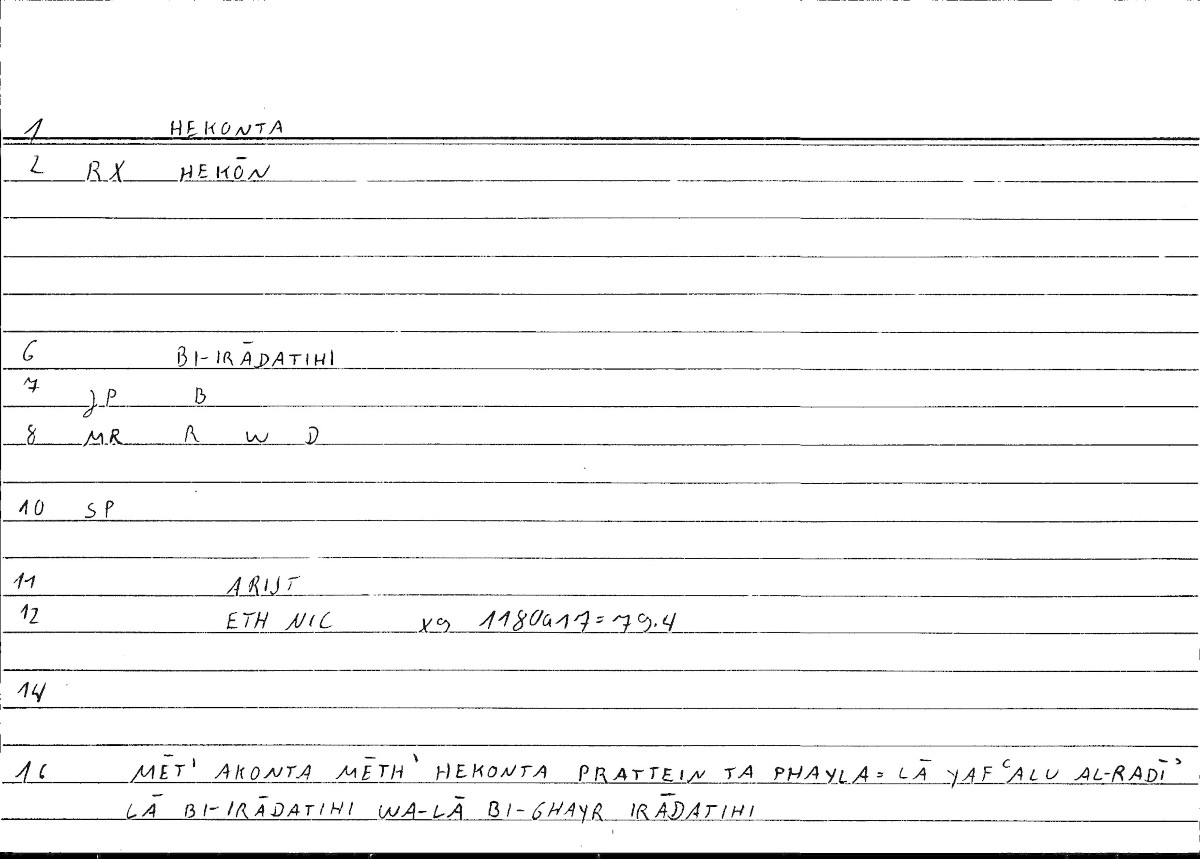 1 HEKONTA
2 RX HEKŌN
6 BI-IRĀDATIHI
7 JP B
8 MR R W D
10 SP
11 ARIST
12 ETH NIC x9 1180a17=79.4
14
16 MĒT' AKONTA MĒTH' HEKONTA PRATTEIN TA PHAYLA= LĀ YAFʿALU AL-RADĪʾ
LĀ BI-IRĀDATIHI WA-LĀ BI-GHAYR IRĀDATIHI